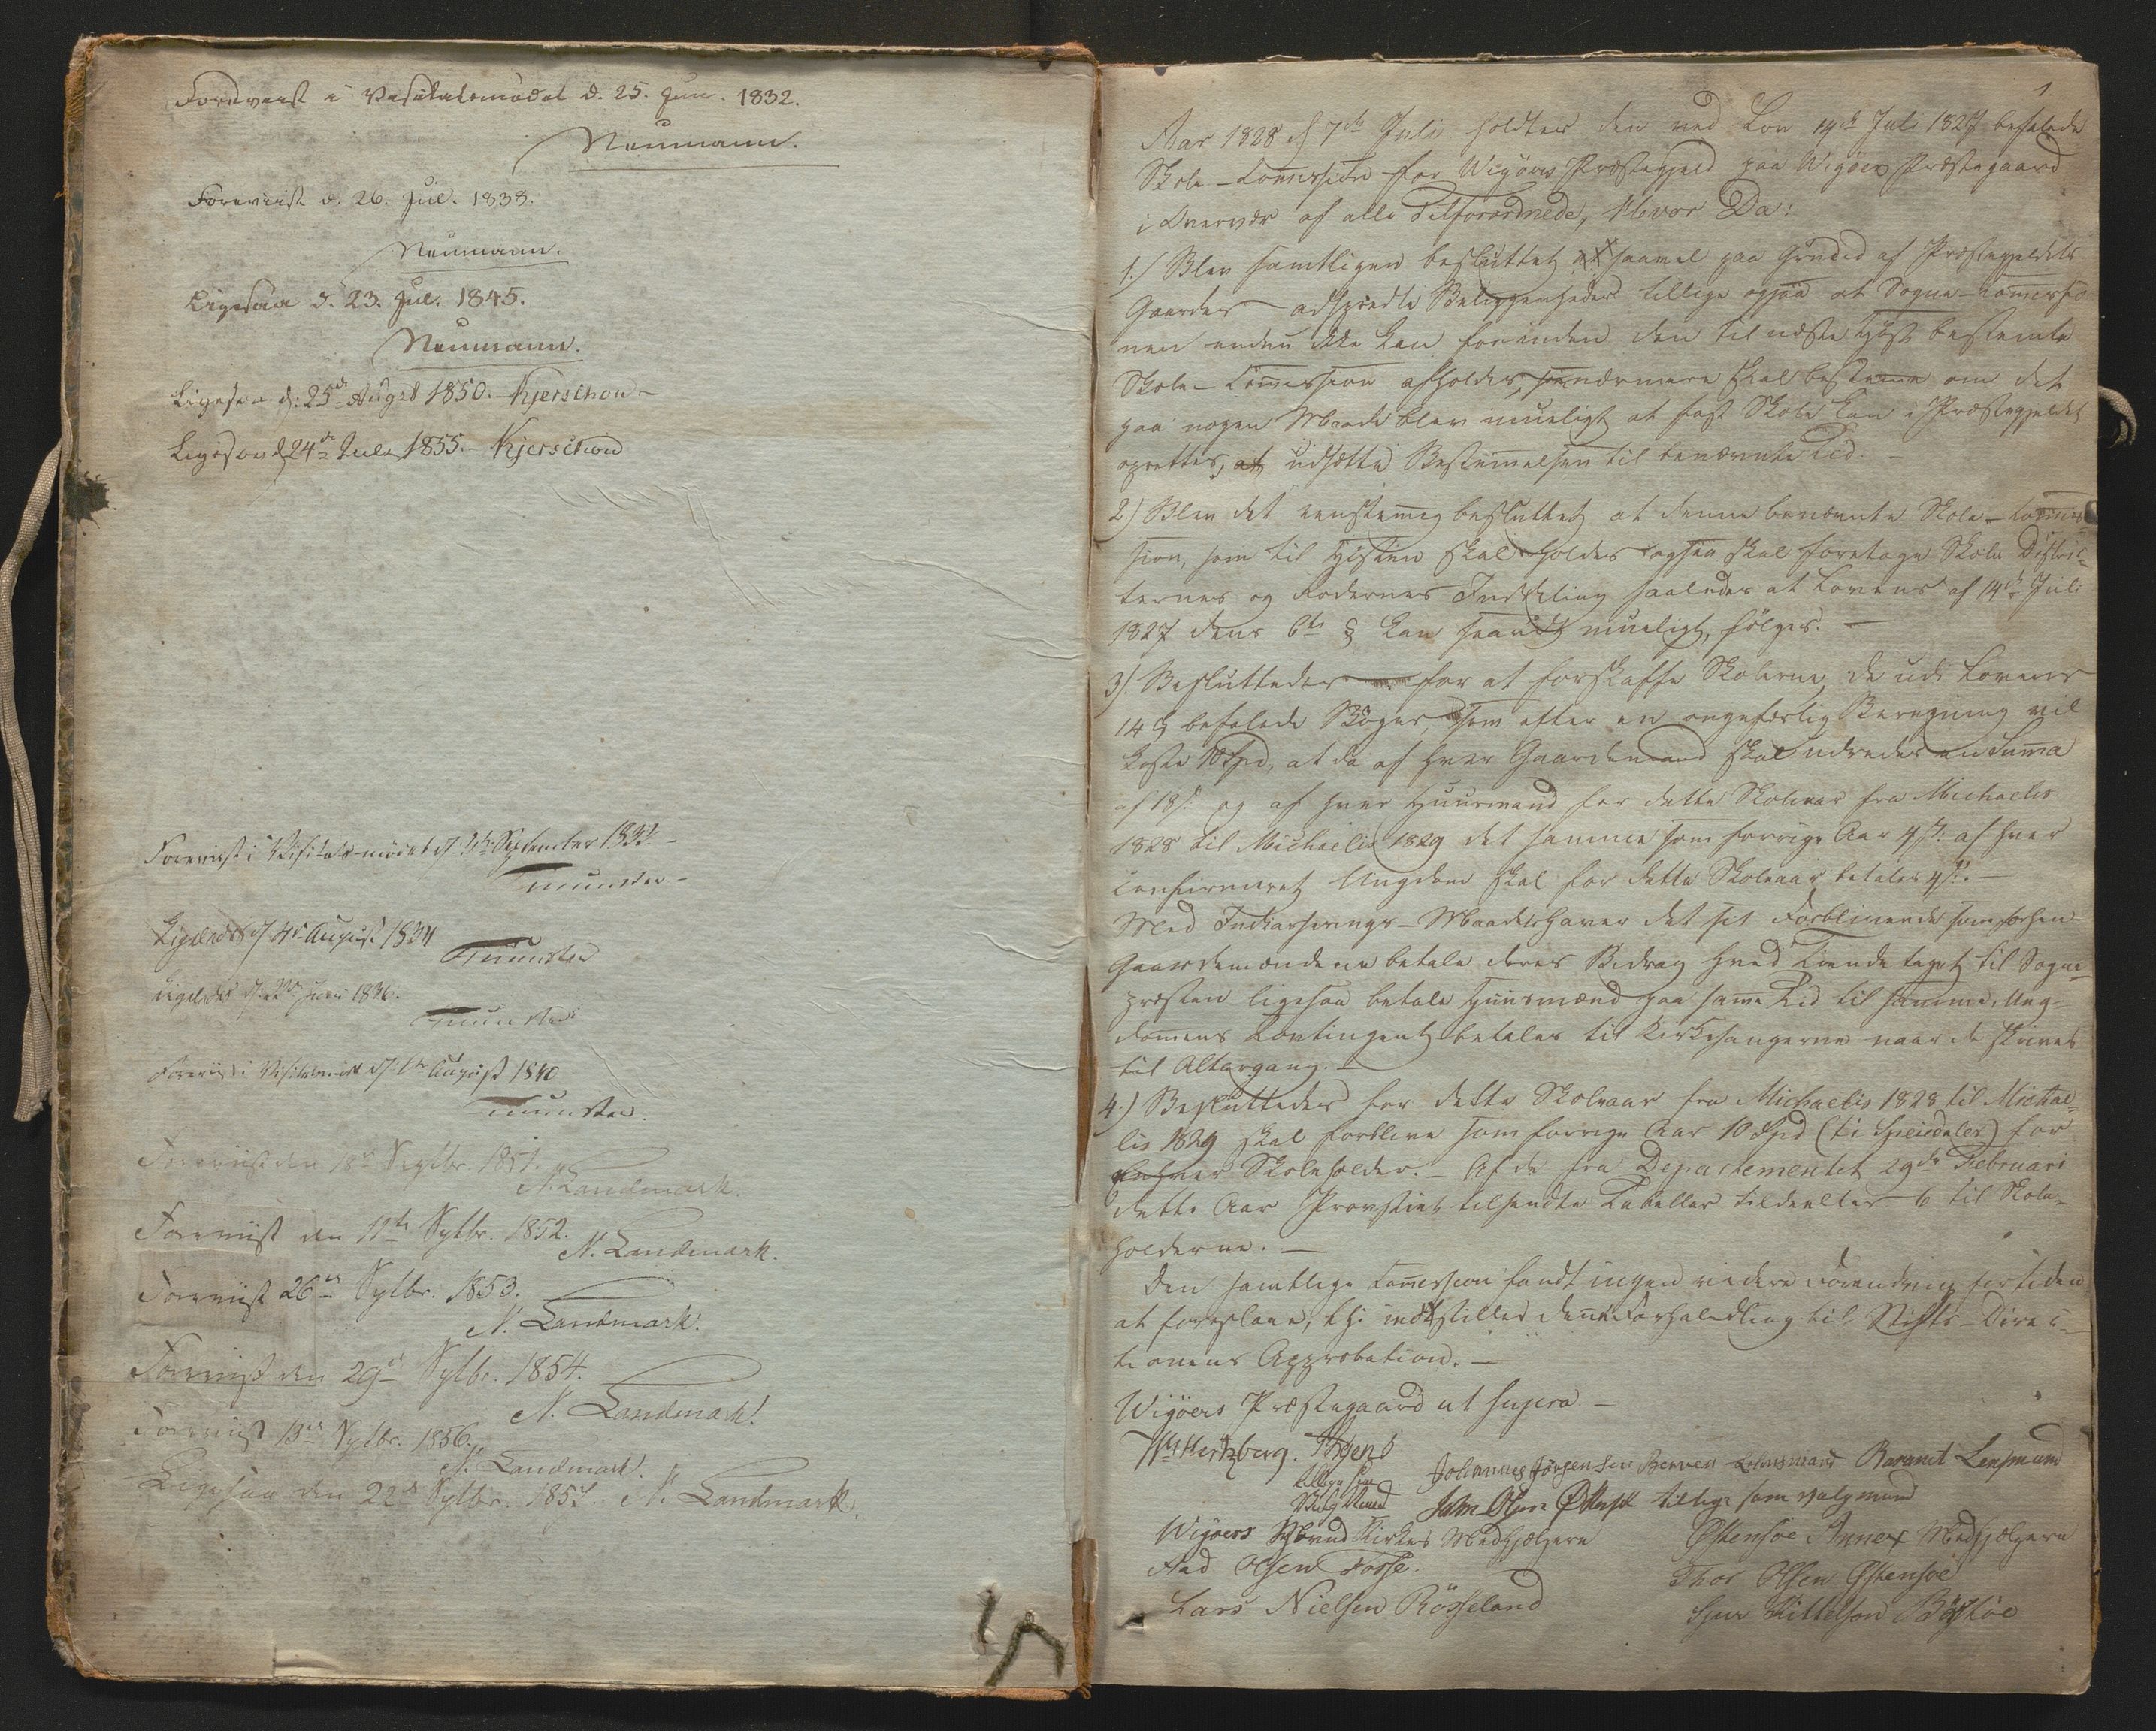 Foreviist i Visitatsmødet d. 25. Jun. 1832.
Neumann.
Foreviist d. 26. Jul. 1838.
Neumann.
Ligesaa d. 23. Jul. 1845.
Neumann.
Ligesaa d: 25de August 1850. Kjerschow
Ligesaa d 24de Juli 1855. Kjerschow
Foreviist i Visitats-mødet d September
Munster
Ligeledes d 4de August 1834
Munster
Ligeledes d Juni 1836.
Munster
Foreviist i Visitatsmødet d August 1840
Munster.
Foreviist den 18de Septbr. 1851.
N. Landmark.
Foreviist den 11te Septbr. 1852.
N. Landmark.
Foreviist 26de Septbr. 1853.
N. Landmark.
Foreviist den 29de Septbr. 1854.
N. Landmark.
Foreviist 13de Septbr. 1856.
N. Landmark.
Ligesaa den 22de Septbr. 1857. N. Landmark.
1
Aar 1828 d 7de Julii holdtes den ved Lov 14de Juli 1827 befalede
Skole-Commission for Wigøers Præstegjeld paa Wigøers Præstegaard
i Overvær af alle Tilforordnede, Hvor Da:
1.) Blev samtligen besluttet at saavel paa Grund af Præstegjeldets
Gaardes adspredte Beliggenheder tillige ogsaa at Sogne-Commissio
nen endnu ikke kan forinden den til næste Høst bestemte
Skole-Commission afholdes, nærmere skal bestemme om det
paa nogen Maade blev mueligt at fast Skole kan i Præstegjeldet
oprettes, at udsætte Bestemmelsen til benævnte Tid. —
2.) Blev det eenstemig besluttet at denne benævnte Skole-Commis-
sion, som til Høsten skal holdes ogsaa skal foretage Skole Distric-
ternes og Rodernes Inddeling saaledes at Lovens af 14de Juli
1827 dens 6te § kan saavidt mueligt, følges. —
3). Besluttedes for at forskaffe Skolerne de udi Lovens
14 § befalede Bøger, som efter en omgefærlig Beregning vil
koste 10 Spd, at da af hver Gaardemand skal udredes en Summa
af 18 s. og af hver Huusmand for dette Skoleaar fra Michaelis
1828 til Michaelis 1829 det samme som forrige Aar af hver
confirmeret Ungdom skal for dette Skoleaar betales 4 s. —
Med Indkasserings-Maaden haver det sit Forblivende som forhen
Gaardemændene betale deres Bidrag hved Tiende taget til Sogne-
præsten ligesaa betale Huusmænd paa samme Tid til samme. Ung-
dommens Contingent betales til Kirkesangerne naar de skrives
til Altergang. —
4.) Besluttedes for dette Skoleaar fra Michaelis 1828 til Michae-
lis 1829 skal forblive som forrige Aar 10 Spd (ti Speciedaler) for
enhver Skoleholder. — Af de fra Departementet 29de Februari
dette Aar Provstiet tilsendte Tabeller tildeeltes 6 til Skole-
holderne. —
Den samtlige Commission fandt ingen videre Forandring for tiden
at foreslaae, thi indstilles denne Forhandling til Stifts-Direc-
tionens Approbation. —
Wigøers Præstegaard ut supra —
Wm Hertzberg.
Johannes Jørgensen Berven Lensmand
tillige som
Valg Mand
John Olsen tillige som valgmand
Wigøers Hovud Kirkes Medhjælpere
Østensøe Annex Medhjælpere
Aad Olsen Fosse.
Thor Olsen Østensøe
Lars Nielsen Røsseland
Sjur Kittelson